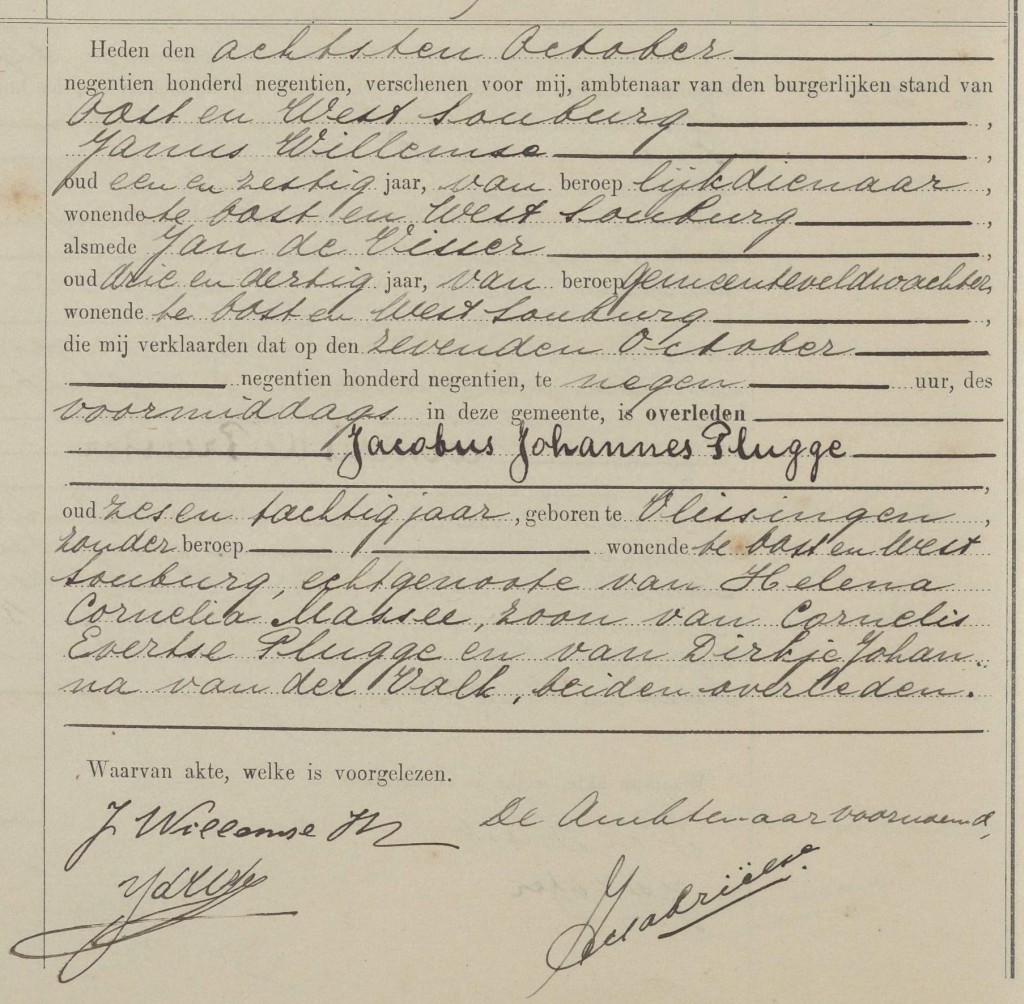 Heden den achtsten October
negentien honderd negentien, verschenen voor mij, ambtenaar van den burgerlijken stand van
Oost en West Souburg,
Janus Willemse,
oud een en zestig jaar, van beroep lijkdienaar,
wonende te Oost en West Souburg,
alsmede Jan de Visser,
oud drie en dertig jaar, van beroep gemeenteveldwachter,
wonende te Oost en West Souburg,
die mij verklaarden dat op den zevenden October
negentien honderd negentien, te negen uur, des
voormiddags in deze gemeente, is overleden
Jacobus Johannes Plugge,
oud zes en tachtig jaar, geboren te Vlissingen,
zonder beroep wonende te Oost en West
Souburg, echtgenoote van Helena
Cornelia Massee, zoon van Cornelis
Evertse Plugge en van Dirkje Johan-
na van der Valk, beiden overleden.
Waarvan akte, welke is voorgelezen.
J Willemse De Ambtenaar voornoemd,